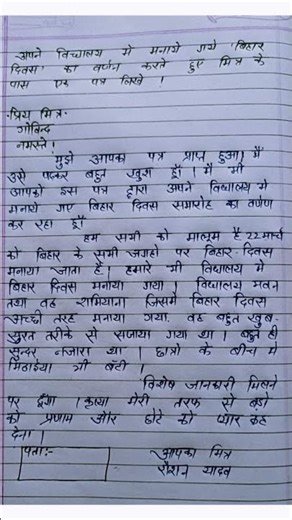 अपने विद्यालय में मनाये गये 'बिहार
दिवस' का वर्णन करते हुए मित्र के
पास एक पत्र लिखें !
प्रिय मित्र-
गोविन्द
नमस्ते !
मुझे आपका पत्र प्राप्त हुआ। मैं
उसे पाकर बहुत खुश हूँ। मैं भी
आपको इस पत्र द्वारा अपने विद्यालय में
मनाये गए बिहार दिवस समारोह का वर्णण
कर रहा हूँ।
हम सभी को मालूम है 22 मार्च
को बिहार के सभी जगहों पर बिहार-दिवस
मनाया जाता है। हमारे भी विद्यालय में
बिहार दिवस मनाया गया। विद्यालय भवन
तथा वह शमियाना जिसमें बिहार दिवस
अच्छी तरह मनाया गया. वह बहुत खुब-
सुरत तरीके से सजाया गया था। बहुत ही
सुन्दर नजारा था। छात्रों के बीच में
मिठाईया भी बँटी।
विशेष जानकारी मिलने
पर दूँगा। कृप्या मेरी तरफ से बड़ो
को प्रणाम और छोटे को प्यार कह
देना।
पता:-
आपका मित्र
रौशन यादव